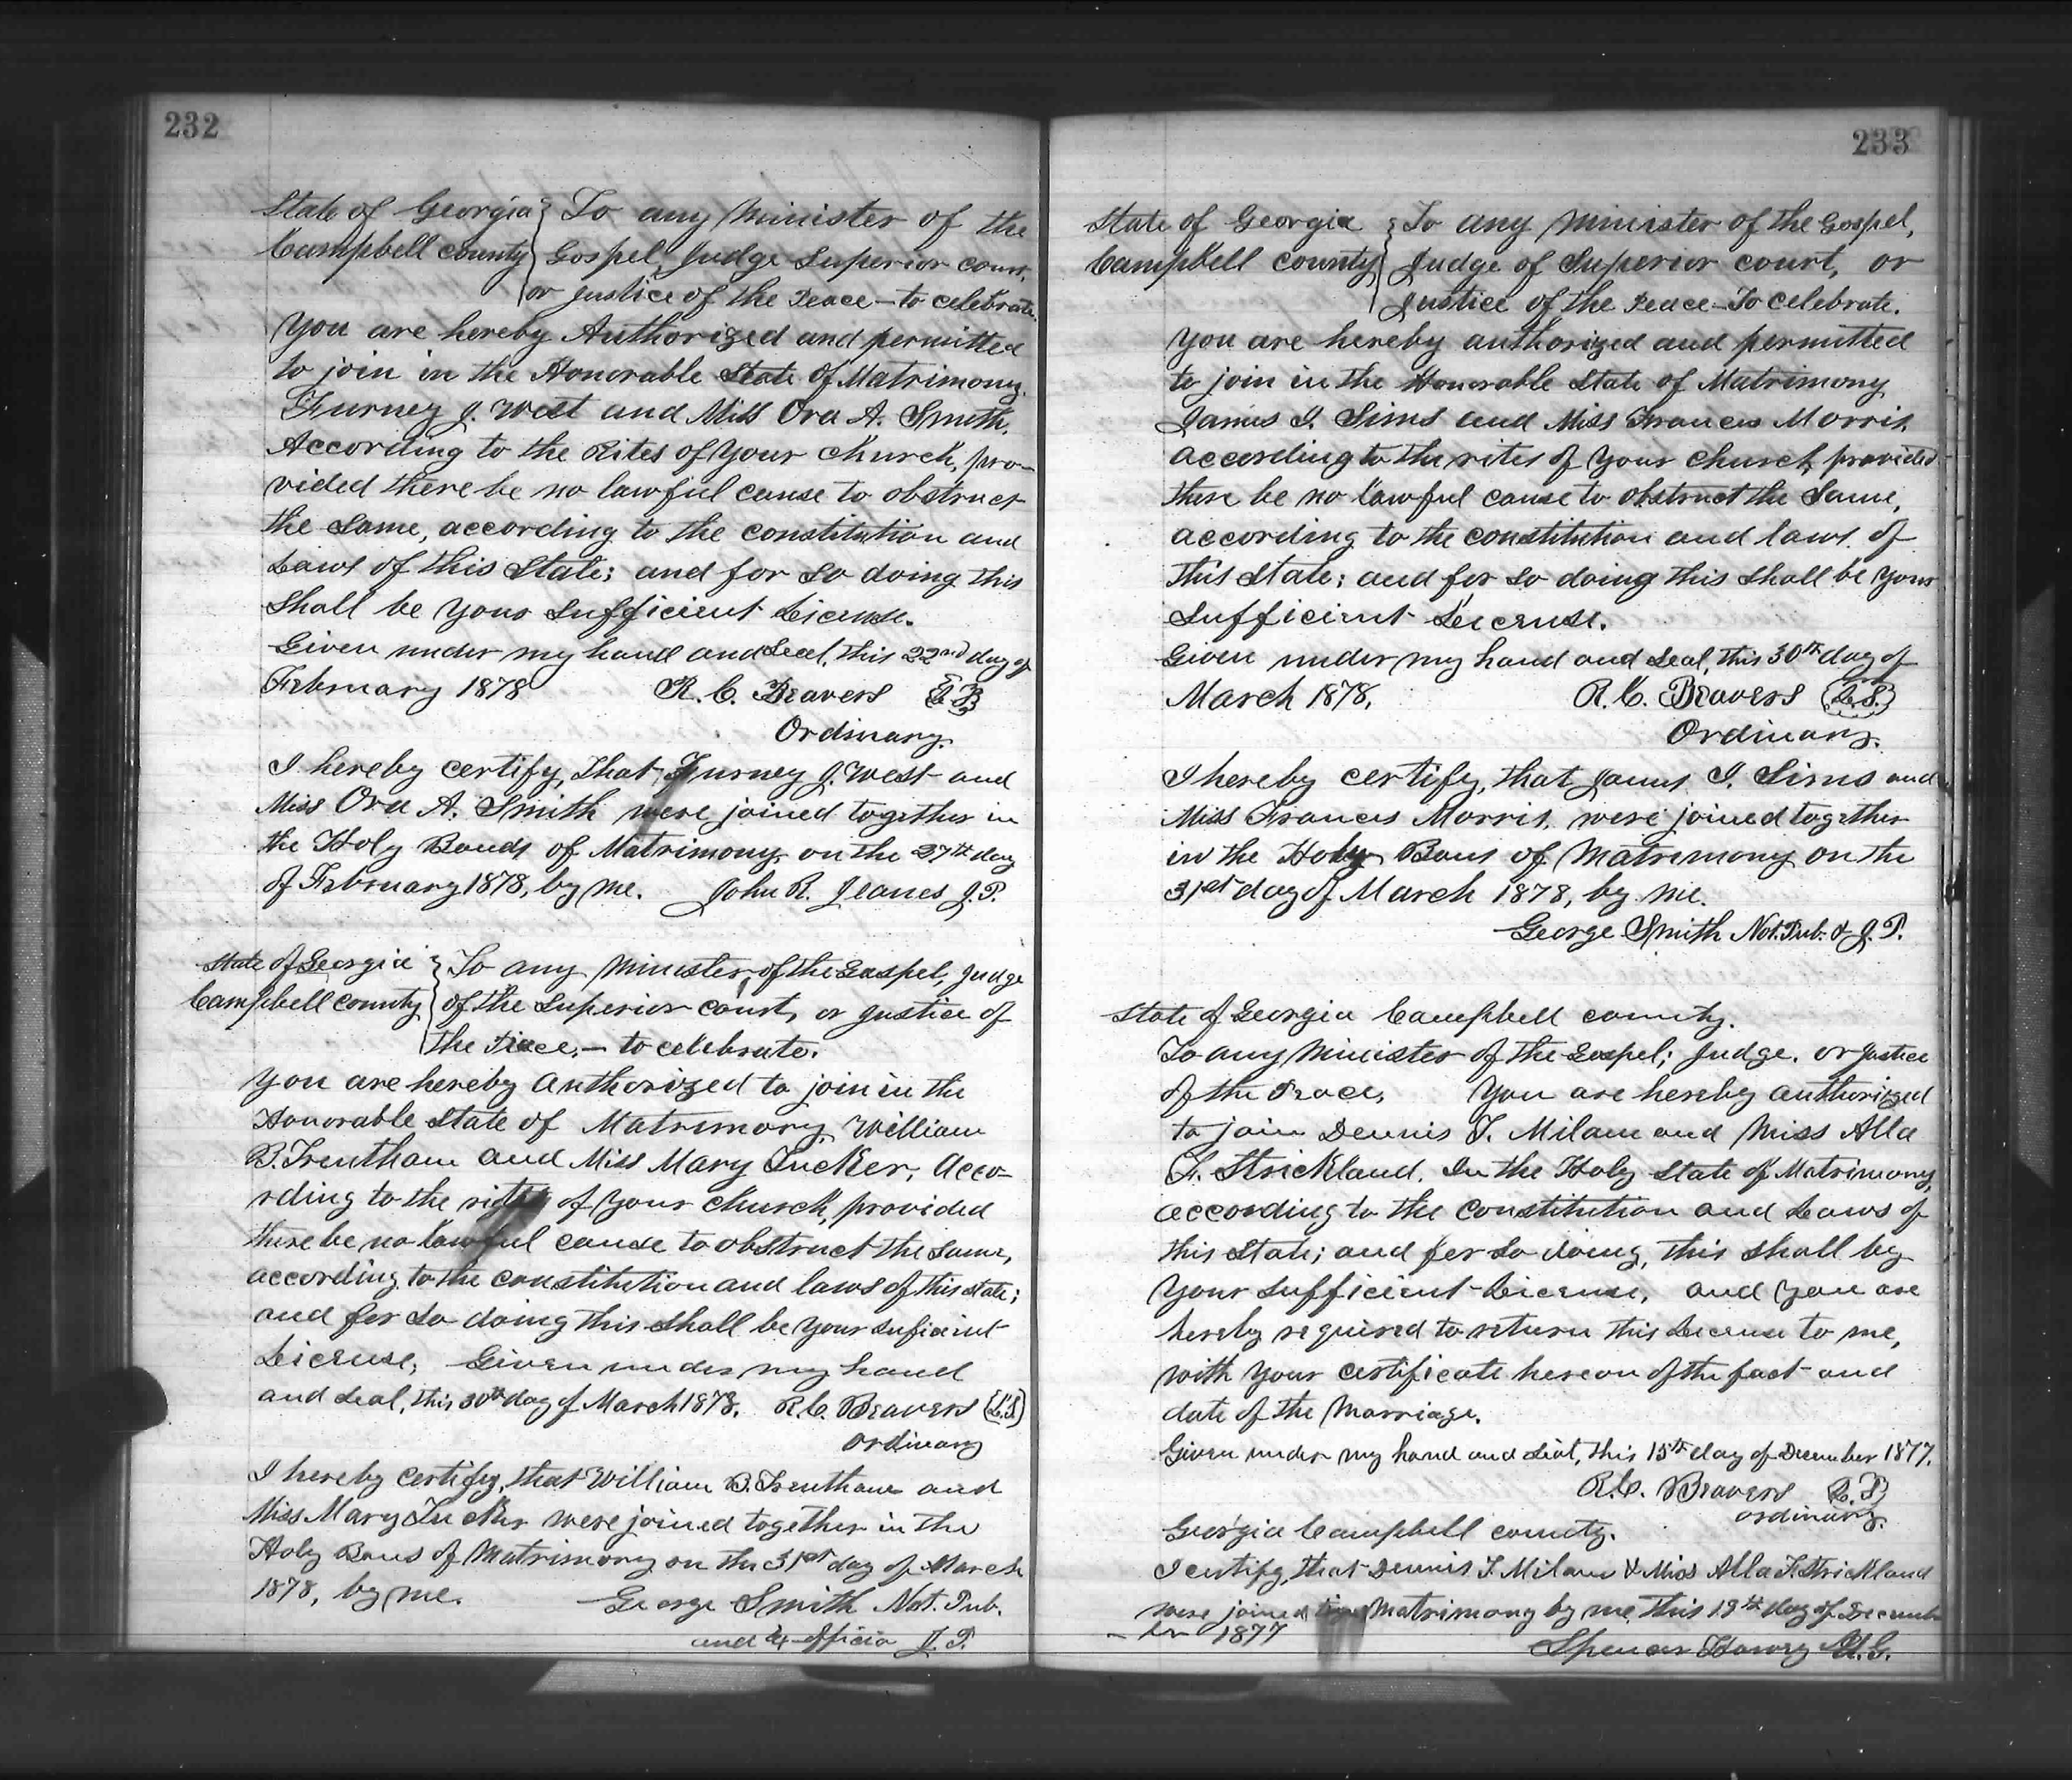 232
State of Georgia } To any Minister of the
Campbell county } Gospel, Judge Superior court,
or Justice of the Peace — to celebrate.
You are hereby Authorized and permitted
to join in the Honorable State of Matrimony,
Furney J. West and Miss Ora A. Smith,
According to the Rites of Your Church, pro-
vided there be no lawful cause to obstruct
the Same, according to the constitution and
Laws of this State; and for so doing this
shall be your Sufficient License.
Given under my hand and Seal, this 22nd day of
February 1878 R. C. Beavers
Ordinary.
I hereby certify, that Furney J. West and
Miss Ora A. Smith were joined together in
the Holy Bonds of Matrimony, on the 27th day
of February 1878, by me. John R. Jeanes J.P.
State of Georgia } To any Minister, of the Gospel, Judge
Campbell county } of the Superior court, or Justice of
the Peace, — to celebrate.
You are hereby Authorized to join in the
Honorable State of Matrimony, William
B. Trentham and Miss Mary Tucker, Acco-
rding to the rites of Your Church, provided
there be no lawful cause to obstruct the Same,
according to the constitution and laws of this State;
and for So doing this shall be Your Suficient
License, Given under my hand
and Seal, this 30th day of March 1878. R. C. Beavers {L.S}
ordinary
I hereby certify, that William B. Trentham and
Miss Mary Tucker were joined together in the
Holy Bans of Matrimony on the 31st day of March
1878, by me. George Smith Not. Pub.
and Ex-officio J. P.
233
State of Georgia } To any Minister of the Gospel,
Campbell county } Judge of Superior court, or
Justice of the Peace — To celebrate.
You are hereby authorized and permitted
to join in the Honorable State of Matrimony
James I. Sims and Miss Frances Morris,
according to the rites of Your Church, provided
there be no lawful cause to obstruct the Same,
according to the constitution and laws of
this State; and for So doing this shall be Your
Sufficient License.
Given under my hand and Seal, this 30th day of
March 1878. R. C. Beavers {L.S.}
Ordinary.
I hereby certify, that James I. Sims and
Miss Frances Morris, were joined together
in the Holy Bans of Matrimony on the
31st day of March 1878, by me.
George Smith Not. Pub. & J. P.
State of Georgia Campbell county.
To any Minister of the Gospel; Judge, or Justice
of the Peace, You are hereby authorized
to join Dennis T. Milam and Miss Alla
F. Strickland, In the Holy State of Matrimony,
according to the Constitution and Laws of
this State; and for So doing, this shall by
Your Sufficient License, and You are
hereby required to return this License to me,
with Your certificate hereon of the fact and
date of the Marriage.
Given under my hand and Seal, this 15th day of December 1877.
R. C. Beavers {L.S}
ordinary.
Georgia Campbell county.
I certify, that Dennis T. Milam & Miss Alla F. Strickland
were joined Matrimony by me, this 19th day of
1877
Spencer M.G.